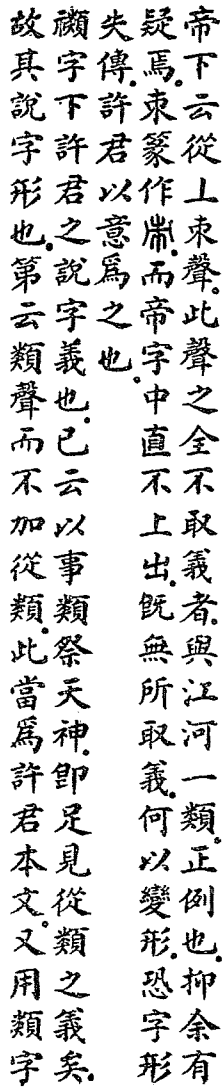 帝下云從丄朿聲。此聲之全不取義者。與江河一類。正例也。抑余有
疑焉。朿篆作𣎵。而帝字中直不上出。旣無所取義。何以變形。恐字形
失傳。許君以意爲之也。
禷字下許君之說字義也。已云以事類祭天神。卽足見從類之義矣。
故其說字形也。第云類聲而不加從類。此當爲許君本文。又用類字